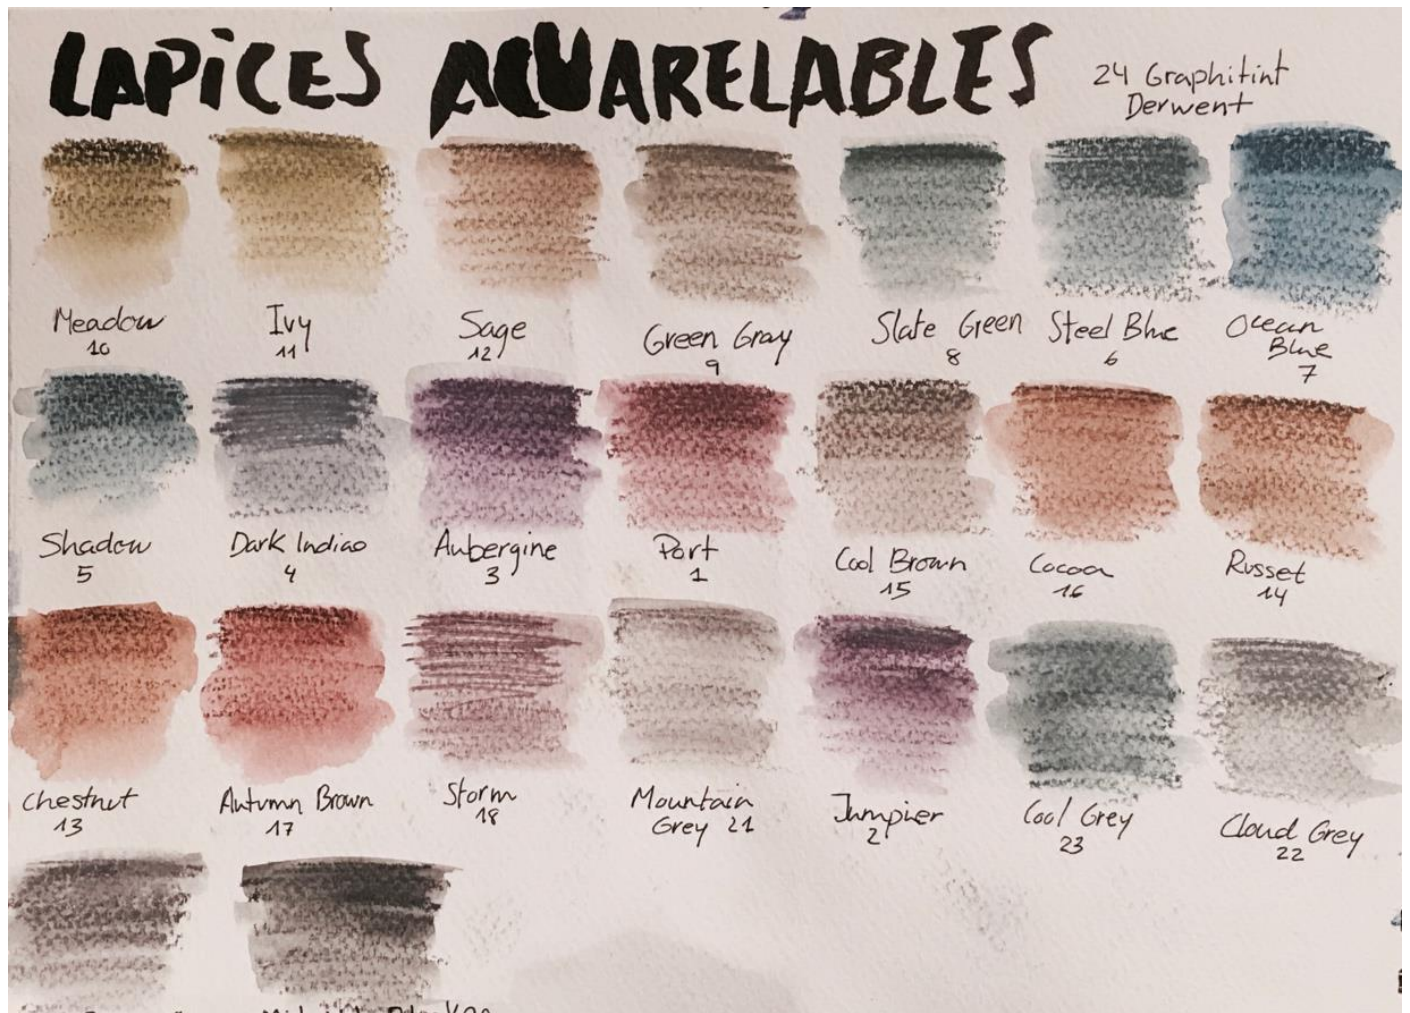 LAPiCES AQUARELABLES
24 Graphitint
Derwent
Meadow
10
Ivy
11
Sage
12
Green Gray
9
Slate Green
8
Steel Blue
6
Ocean
Blue
7
Shadow
5
Dark Indigo
4
Aubergine
3
Port
1
Cool Brown
15
Cocoa
16
Russet
14
Chestnut
13
Autumn Brown
17
Storm
18
Mountain
Grey 21
Jumpier
2
Cool Grey
23
Cloud Grey
22